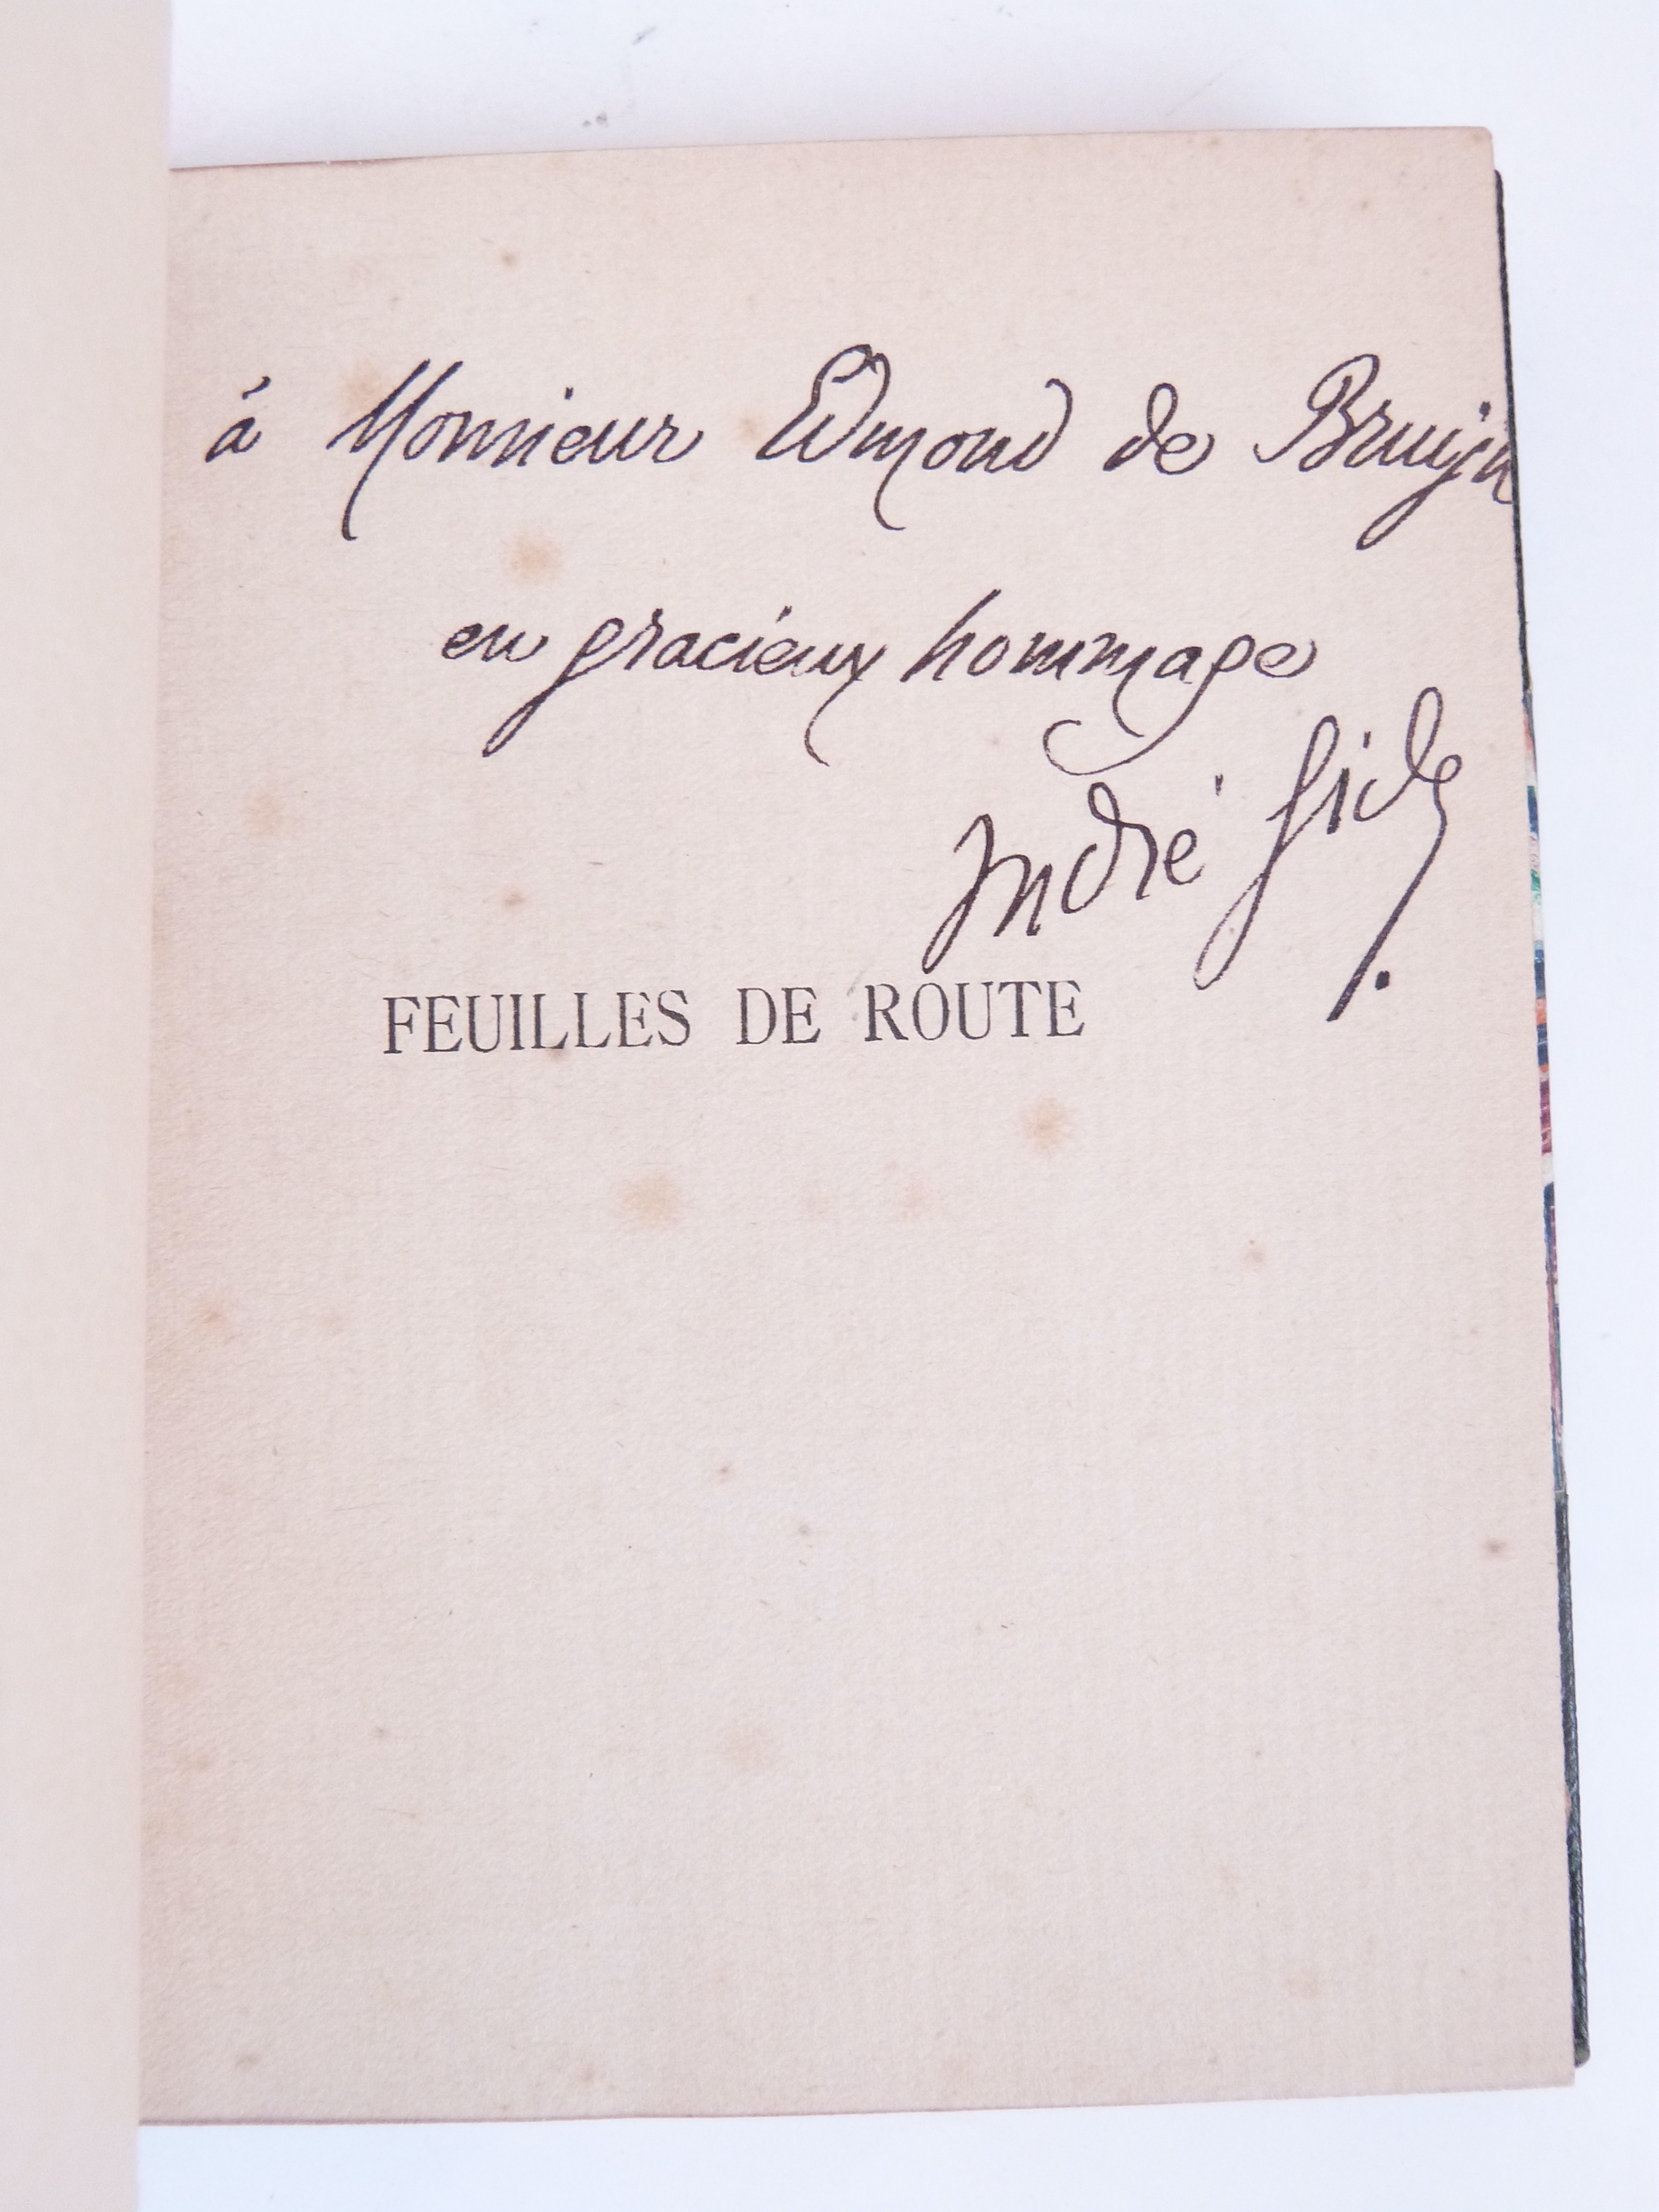 à Monsieur Edmond de Bruijn
en gracieux hommage
André Gide.
FEUILLES DE ROUTE